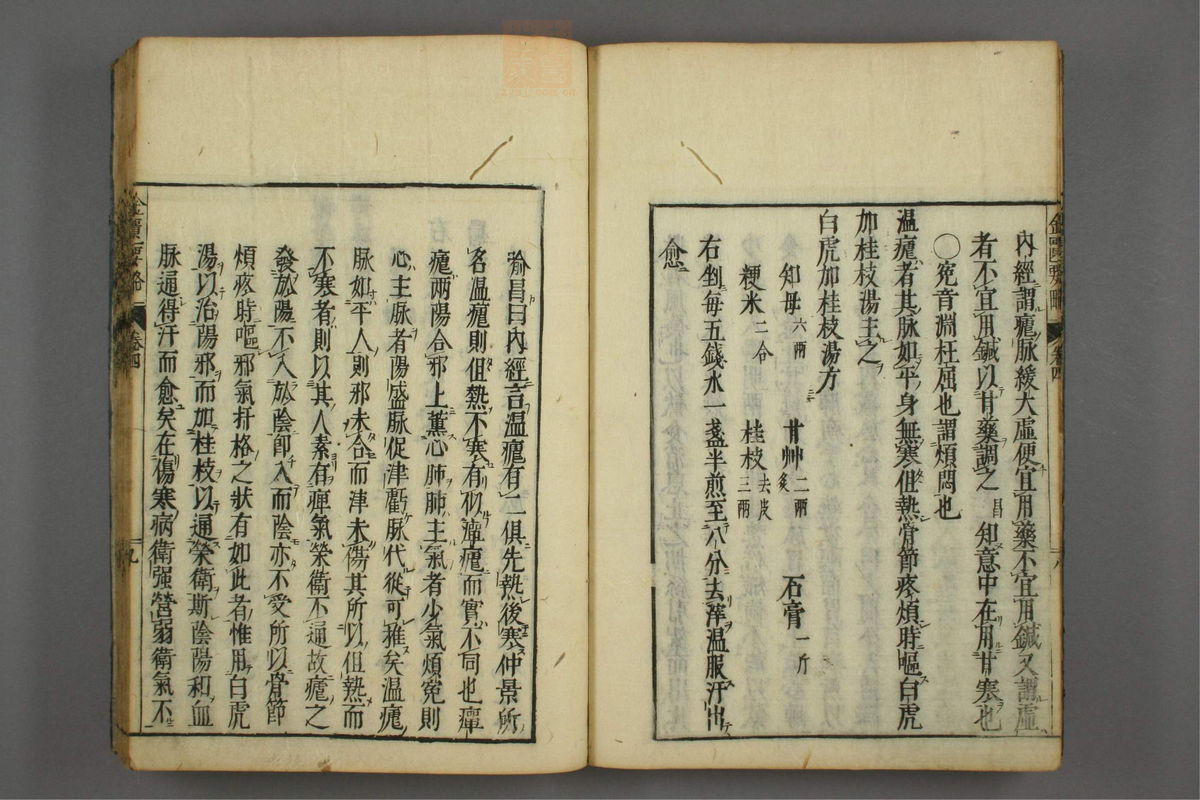 內經謂瘧脉緩大虛便宜用藥不宜用鍼又謂虛
者不宜用鍼以甘藥調之昌知意中在用甘寒也
○寃音淵枉屈也謂煩悶也
温瘧者其脉如平身無寒但熱骨節疼煩時嘔白虎
加桂枝湯主之
白虎加桂枝湯方
知母六兩 甘艸二兩炙 石膏一斤
粳米二合 桂枝去皮三兩
右剉每五錢水一盞半煎至八分去滓温服汗出
愈
喻昌曰內經言温瘧有二俱先熱後寒仲景所
名温瘧則但熱不寒有似癉瘧而實不同也癉
瘧兩陽合邪上薰心肺肺主氣者少氣煩寃則
心主脉者陽盛脉促津虧脉代從可推矣温瘧
脉如平人則邪未合而津未傷其所以但熱而
不寒者則以其人素有痺氣榮衛不通故瘧之
發於陽不入於陰卽入而陰亦不受所以骨節
煩疼時嘔邪氣扞格之狀有如此者惟用白虎
湯以治陽邪而加桂枝以通榮衛斯陰陽和血
脉通得汗而愈矣在傷寒病衛强營弱衛氣不
金匱要略 卷四 九